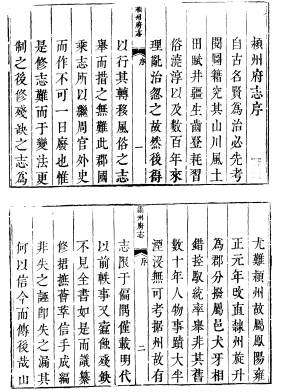 頴州府志序
自古名賢為治必先考
閱圖籍究其山川風土
田賦井疆生齒登耗習
俗澆淳以及數百年來
理亂治忽之故然後得
穎州府志
序
一
以行其轉移風俗之志
舉而措之無難此郡國
乘志所以繼周官外史
而作不可一日廢也惟
是修志難而于變法更
制之後修殘缺之志為
尤難穎州故屬鳳陽雍
正元年改直隸州旋升
為郡分撥屬邑犬牙相
錯控馭統率舉非其舊
數十年人物事蹟大半
湮沒無可考据州故有
穎州府志
序
二
志限于偏隅僅載明代
以前軼事又蠧蝕殘缺
不見全書如是而議纂
修捃摭薈萃信手成編
非失之誣即失之漏其
何以信今而傳後哉山